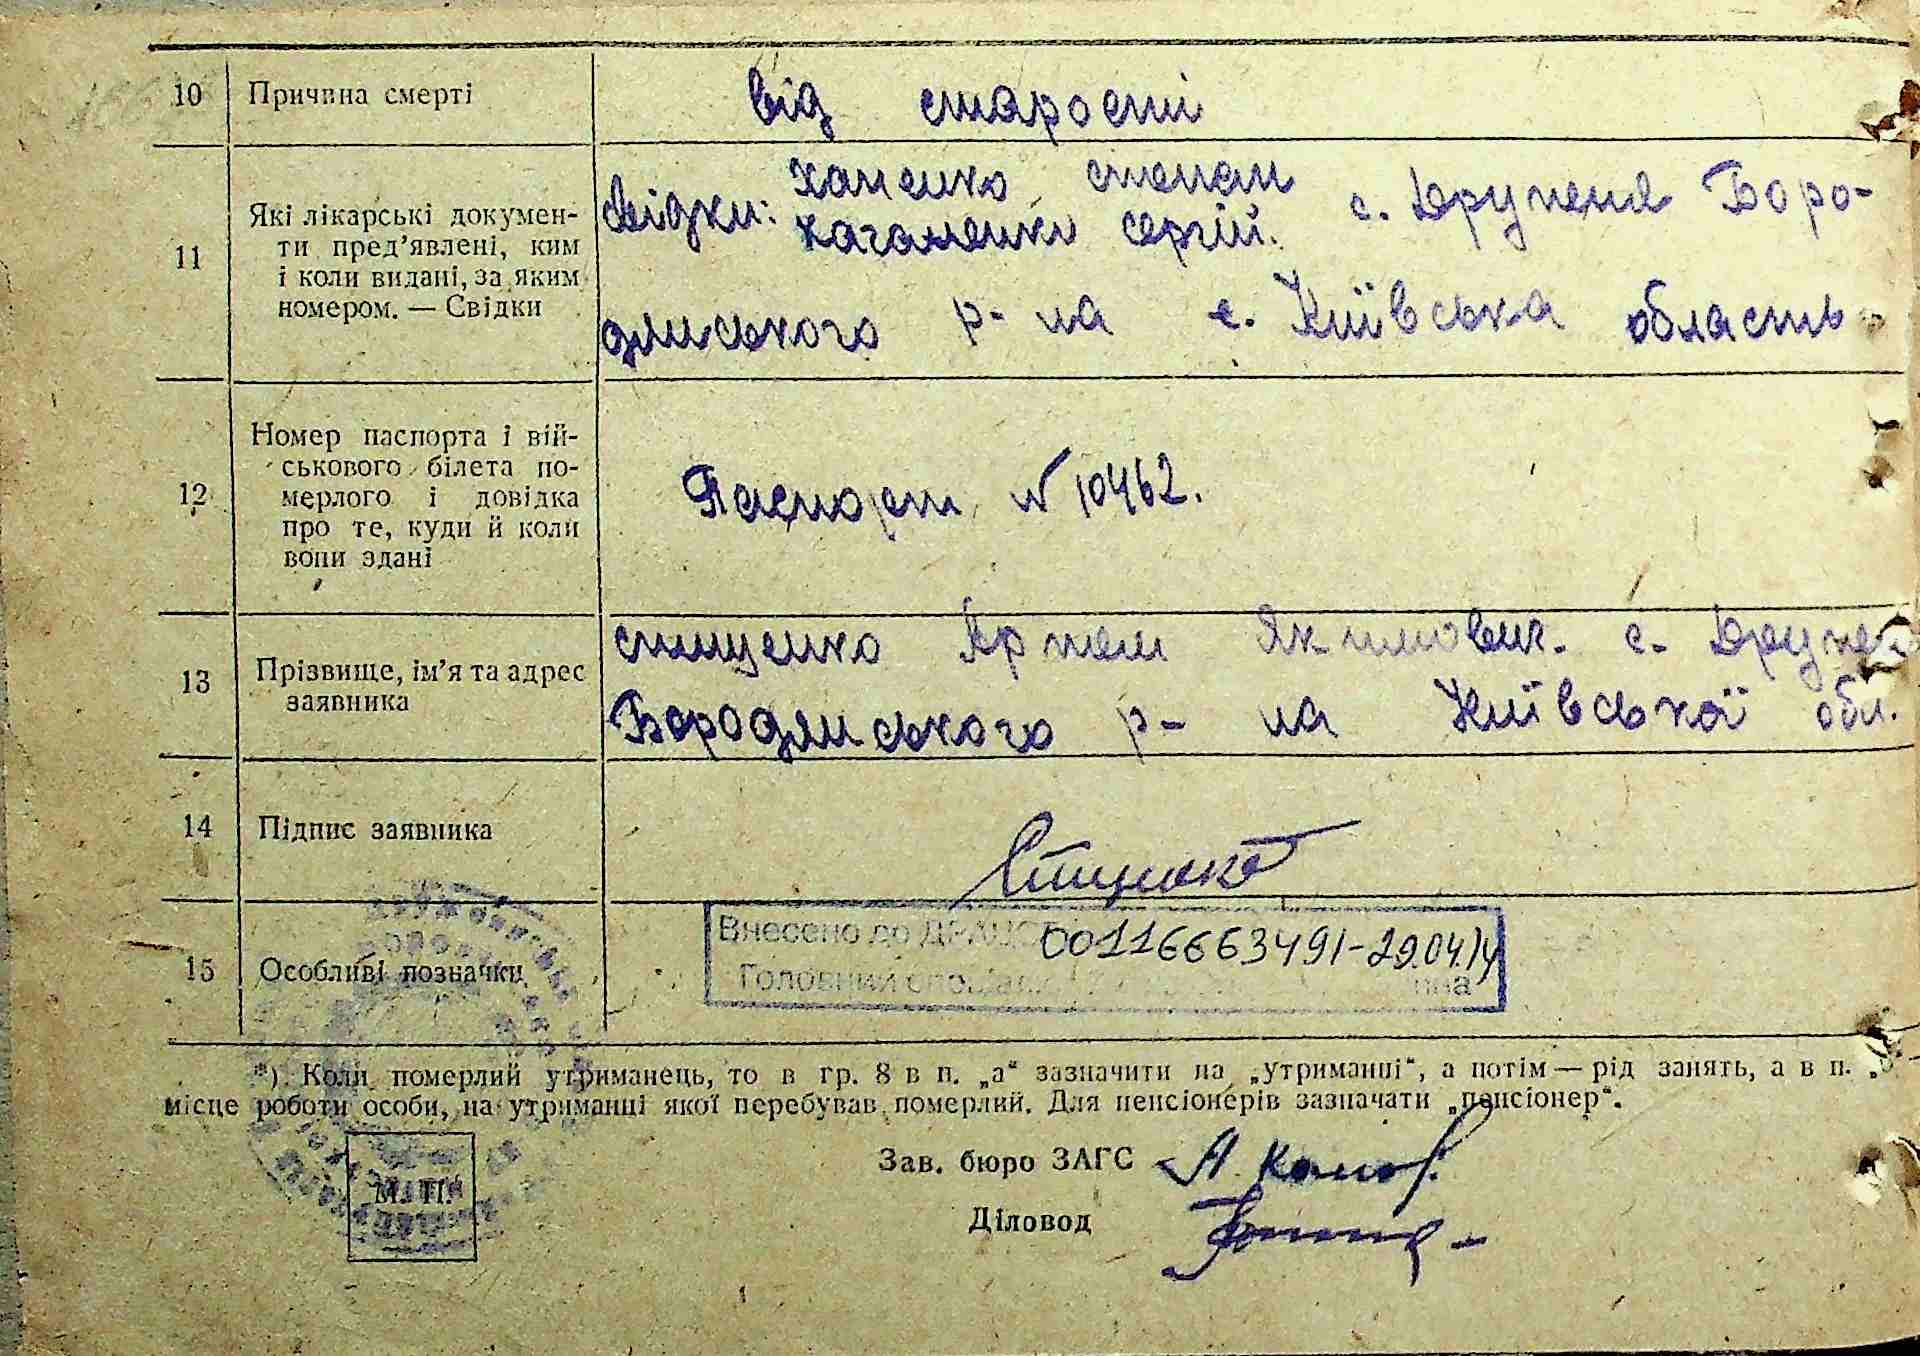 10 Причина смерті від старости
11 Які лікарські докумен-
ти пред’явлені, ким
і коли видані, за яким
номером. — Свідки
свідки: Ханенко степан
сергій. с. Друженя Боро-
дянського р-на с. Київська область
12 Номер паспорта і вій-
ськового білета по-
мерлого і довідка
про те, куди й коли
вони здані
Паспорт № 10462.
13 Прізвище, ім’я та адрес
заявника
Артем Якимович. с.
Бородянського р-на Київської обл.
14 Підпис заявника
15 Особливі позначки
Внесено до ДРАЦС 00116663491-29.04.14
Головний
*) Коли померлий утриманець, то в гр. 8 в п. „а“ зазначити на „утриманні“, а потім — рід занять, а в п.
місце роботи особи, на утриманні якої перебував померлий. Для пенсіонерів зазначати „пенсіонер“.
Зав. бюро ЗАГС
М. П.
Діловод